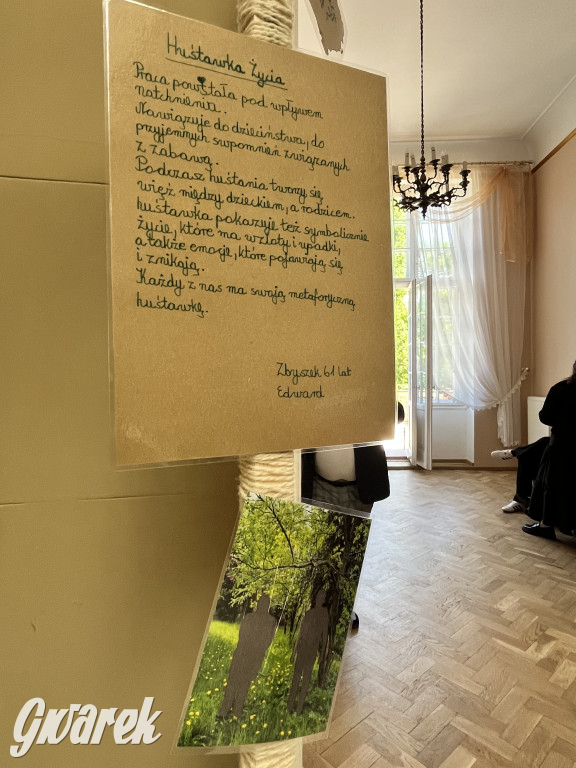 Huśtawka Życia
Praca powstała pod wpływem
natchnienia.
Nawiązuje do dzieciństwa, do
przyjemnych wspomnień związanych
z zabawą.
Podczas huśtania tworzy się
więź między dzieckiem, a rodzicem.
huśtawka pokazuje też symbolicznie
życie, które ma wzloty i upadki,
a także emocje, które pojawiają się
i znikają.
Każdy z nas ma swoją metaforyczną
huśtawkę.
Zbyszek 61 lat
Edward
Gwarek